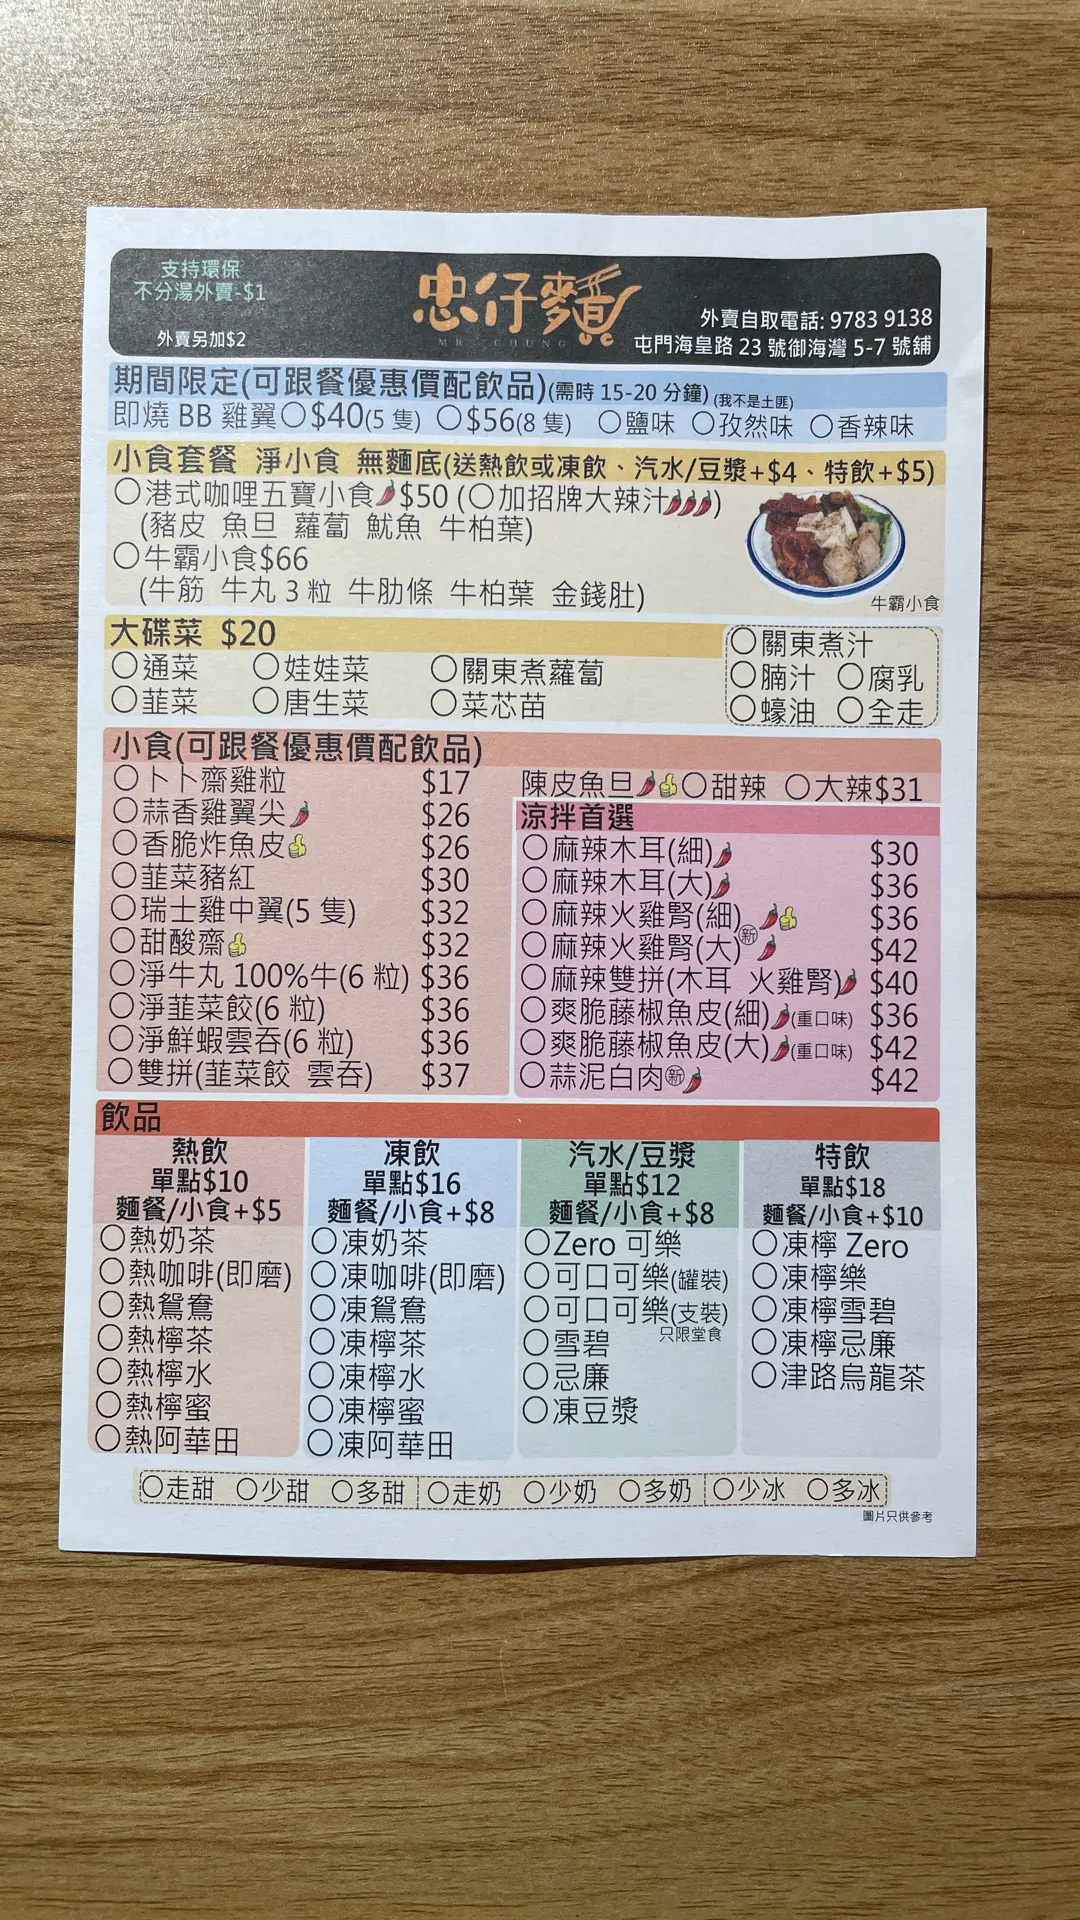 支持環保
不分湯外賣-$1
外賣另加$2
忠仔麵
MR CHUNG
外賣自取電話: 9783 9138
屯門海皇路 23 號御海灣 5-7 號舖
期間限定(可跟餐優惠價配飲品)(需時 15-20 分鐘) (我不是土匪)
即燒 BB 雞翼〇$40(5 隻) 〇$56(8 隻) 〇鹽味 〇孜然味 〇香辣味
小食套餐 淨小食 無麵底(送熱飲或凍飲、汽水/豆漿+$4、特飲+$5)
〇港式咖哩五寶小食🌶$50 (〇加招牌大辣汁🌶🌶🌶)
(豬皮 魚旦 蘿蔔 魷魚 牛柏葉)
〇牛霸小食$66
(牛筋 牛丸 3 粒 牛肋條 牛柏葉 金錢肚)
牛霸小食
大碟菜 $20
〇通菜 〇娃娃菜 〇關東煮蘿蔔
〇韮菜 〇唐生菜 〇菜芯苗
〇關東煮汁
〇腩汁 〇腐乳
〇蠔油 〇全走
小食(可跟餐優惠價配飲品)
〇卜卜齋雞粒 $17
〇蒜香雞翼尖🌶 $26
〇香脆炸魚皮👍 $26
〇韮菜豬紅 $30
〇瑞士雞中翼(5 隻) $32
〇甜酸齋👍 $32
〇淨牛丸 100%牛(6 粒) $36
〇淨韮菜餃(6 粒) $36
〇淨鮮蝦雲吞(6 粒) $36
〇雙拼(韮菜餃 雲吞) $37
陳皮魚旦🌶👍〇甜辣 〇大辣$31
涼拌首選
〇麻辣木耳(細)🌶 $30
〇麻辣木耳(大)🌶 $36
〇麻辣火雞腎(細)🌶👍 $36
新
〇麻辣火雞腎(大)🌶 $42
〇麻辣雙拼(木耳 火雞腎)🌶 $40
〇爽脆藤椒魚皮(細)🌶(重口味) $36
〇爽脆藤椒魚皮(大)🌶(重口味) $42
〇蒜泥白肉新🌶 $42
飲品
熱飲
單點$10
麵餐/小食+$5
〇熱奶茶
〇熱咖啡(即磨)
〇熱鴛鴦
〇熱檸茶
〇熱檸水
〇熱檸蜜
〇熱阿華田
凍飲
單點$16
麵餐/小食+$8
〇凍奶茶
〇凍咖啡(即磨)
〇凍鴛鴦
〇凍檸茶
〇凍檸水
〇凍檸蜜
〇凍阿華田
汽水/豆漿
單點$12
麵餐/小食+$8
〇Zero 可樂
〇可口可樂(罐裝)
〇可口可樂(支裝)
只限堂食
〇雪碧
〇忌廉
〇凍豆漿
特飲
單點$18
麵餐/小食+$10
〇凍檸 Zero
〇凍檸樂
〇凍檸雪碧
〇凍檸忌廉
〇津路烏龍茶
〇走甜 〇少甜 〇多甜 〇走奶 〇少奶 〇多奶 〇少冰 〇多冰
圖片只供參考